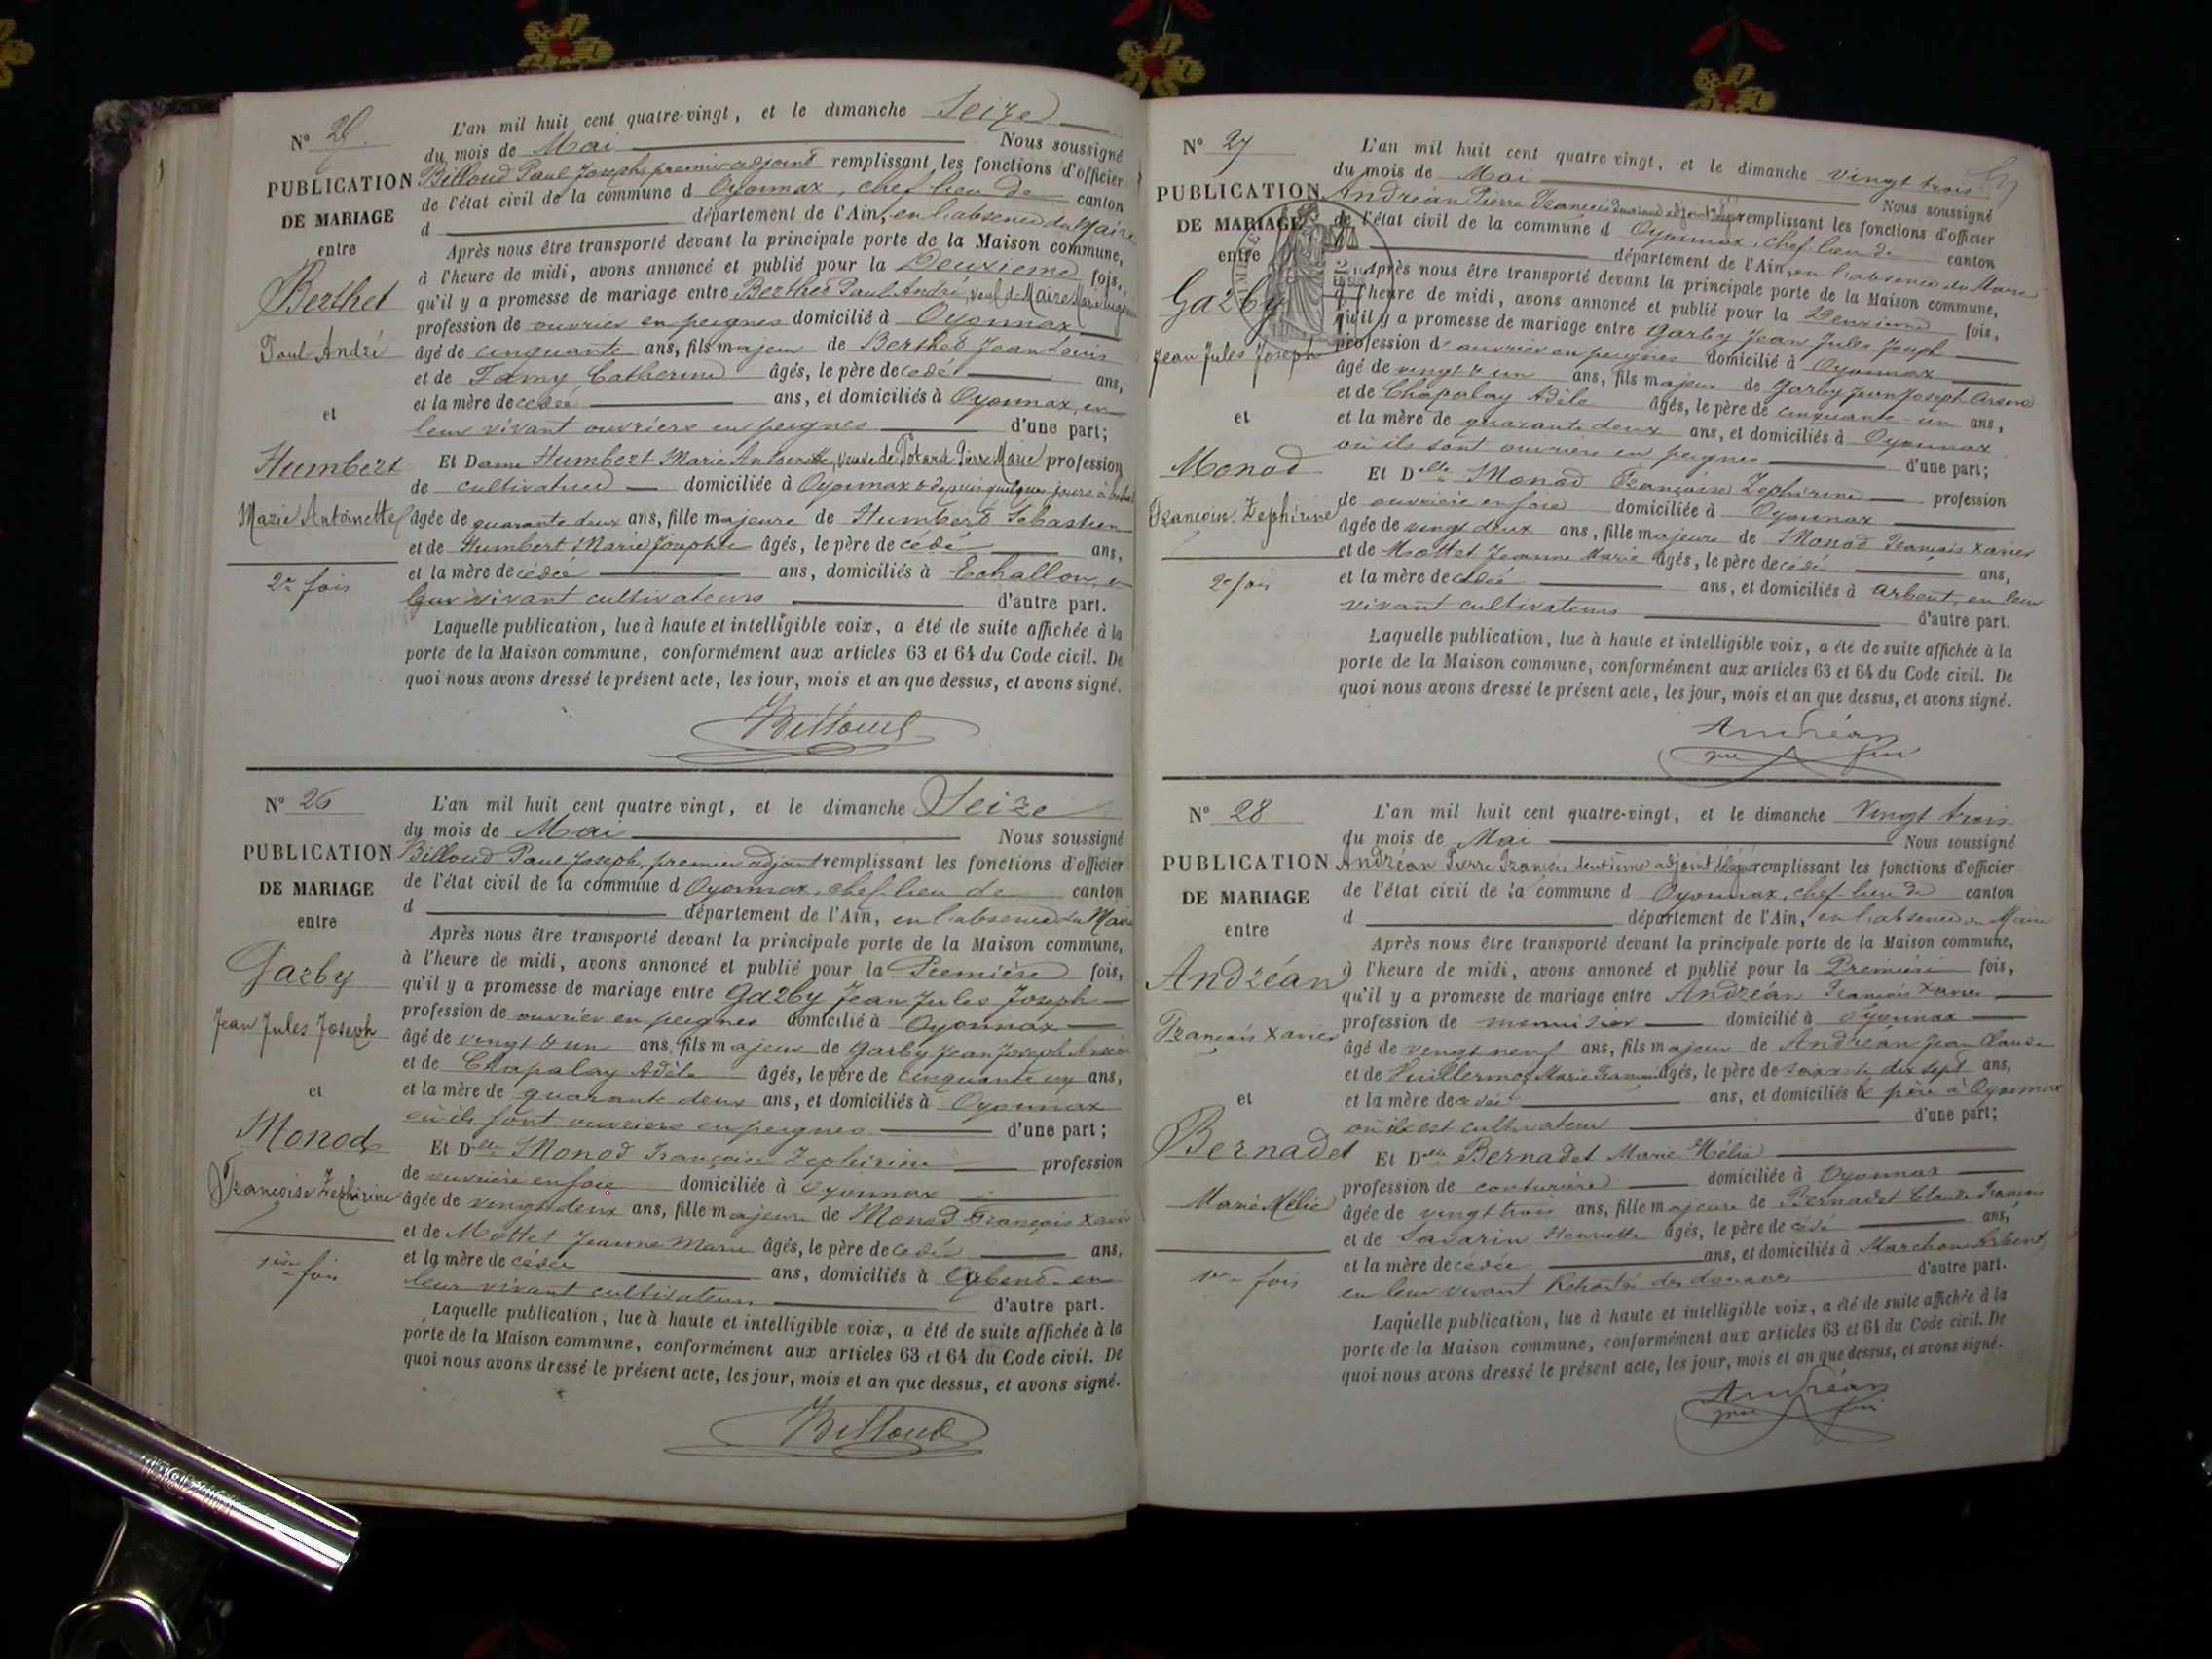 N° 25.
PUBLICATION
DE MARIAGE
entre
Berthet
Paul André
et
Humbert
Marie Antoinette
2e fois
L'an mil huit cent quatre-vingt, et le dimanche Seize
du mois de Mai Nous soussigné
Billoud Paul Joseph, premier adjoint remplissant les fonctions d'officier
de l'état civil de la commune d Oyonnax, chef lieu de canton
d département de l'Ain, en l'absence du Maire
Après nous être transporté devant la principale porte de la Maison commune,
à l'heure de midi, avons annoncé et publié pour la Deuxième fois,
qu'il y a promesse de mariage entre Berthet Paul André, veuf de Maire Marie
profession de ouvrier en peignes domicilié à Oyonnax
âgé de cinquante ans, fils majeur de Berthet Jean Louis
et de Famy Catherine âgés, le père decédé ans,
et la mère decédée ans, et domiciliés à Oyonnax, en
leur vivant ouvriers en peignes d'une part;
Et Dame Humbert Marie Antoinette, veuve de Potard Pierre Marie profession
de cultivateur domiciliée à Oyonnax & depuis quelques jours à
âgée de quarante deux ans, fille majeure de Humbert Sebastien
et de Humbert Marie Josephte âgés, le père de cédé ans,
et la mère decédée ans, domiciliés à Echallon, en
leur vivant cultivateurs d'autre part.
Laquelle publication, lue à haute et intelligible voix, a été de suite affichée à la
porte de la Maison commune, conformément aux articles 63 et 64 du Code civil. De
quoi nous avons dressé le présent acte, les jour, mois et an que dessus, et avons signé.
Billoud
N° 26
PUBLICATION
DE MARIAGE
entre
Garby
Jean Jules Joseph
et
Monod
Françoise Zephirine
1ère fois
L'an mil huit cent quatre-vingt, et le dimanche Seize
du mois de Mai Nous soussigné
Billoud Paul Joseph, premier adjoint remplissant les fonctions d'officier
de l'état civil de la commune d Oyonnax, chef-lieu de canton
d département de l'Ain, en l'absence du Maire
Après nous être transporté devant la principale porte de la Maison commune,
à l'heure de midi, avons annoncé et publié pour la Première fois,
qu'il y a promesse de mariage entre Garby Jean Jules Joseph
profession de ouvrier en peignes domicilié à Oyonnax
âgé de vingt & un ans, fils majeur de Garby Jean Joseph Arsène
et de Chapalay Adèle âgés, le père de cinquante un ans,
et la mère de quarante deux ans, et domiciliés à Oyonnax
où ils sont ouvriers en peignes d'une part;
Et Delle Monod Françoise Zephirine profession
de ouvrière en soie domiciliée à Oyonnax
âgée de vingt deux ans, fille majeure de Monod François Xavier
et de Mottet Jeanne Marie âgés, le père decédé ans,
et la mère de cédée ans, domiciliés à Arbent en
leur vivant cultivateurs d'autre part.
Laquelle publication, lue à haute et intelligible voix, a été de suite affichée à la
porte de la Maison commune, conformément aux articles 63 et 64 du Code civil. De
quoi nous avons dressé le présent acte, les jour, mois et an que dessus, et avons signé.
Billoud
N° 27
PUBLICATION
DE MARIAGE
entre
Garby
Jean Jules Joseph
et
Monod
Francoise Zephirine
2e fois
L'an mil huit cent quatre-vingt, et le dimanche vingt trois
du mois de Mai Nous soussigné
Andréan Pierre François deuxième adjoint délégué remplissant les fonctions d'officier
de l'état civil de la commune d Oyonnax, chef lieu de canton
département de l'Ain, en l'absence du Maire
Après nous être transporté devant la principale porte de la Maison commune,
à l'heure de midi, avons annoncé et publié pour la Deuxième fois,
qu'il y a promesse de mariage entre Garby Jean Jules Joseph
profession d'ouvrier en peignes domicilié à Oyonnax
âgé de vingt & un ans, fils majeur de Garby Jean Joseph Arsène
et de Chapalay Adèle âgés, le père de cinquante un ans,
et la mère de quarante deux ans, et domiciliés à Oyonnax
où ils sont ouvriers en peignes d'une part;
Et Delle Monod Françoise Zephirine profession
de ouvrière en soie domiciliée à Oyonnax
âgée de vingt deux ans, fille majeure de Monod François Xavier
et de Mottet Jeanne Marie âgés, le père decédé ans,
et la mère decédée ans, et domiciliés à Arbent, en leur
vivant cultivateurs d'autre part.
Laquelle publication, lue à haute et intelligible voix, a été de suite affichée à la
porte de la Maison commune, conformément aux articles 63 et 64 du Code civil. De
quoi nous avons dressé le présent acte, les jour, mois et an que dessus, et avons signé.
Andréan
N° 28
PUBLICATION
DE MARIAGE
entre
Andréan
François Xavier
et
Bernadet
Marie Mélie
1ère fois
L'an mil huit cent quatre-vingt, et le dimanche Vingt trois
du mois de Mai Nous soussigné
Andréan Pierre François deuxième adjoint délégué remplissant les fonctions d'officier
de l'état civil de la commune d Oyonnax, chef-lieu de canton
d département de l'Ain, en l'absence du Maire
Après nous être transporté devant la principale porte de la Maison commune,
à l'heure de midi, avons annoncé et publié pour la Première fois,
qu'il y a promesse de mariage entre Andréan François Xavier
profession de menuisier domicilié à Oyonnax
âgé de vingt neuf ans, fils majeur de Andréan Jean Claude
et de Guillermoz Marie Françoise âgés, le père de soixante dix sept ans,
et la mère decedée ans, et domiciliés le père à Oyonnax
où il est cultivateur d'une part;
Et Delle Bernadet Marie Mélie
profession de couturière domiciliée à Oyonnax
âgée de vingt trois ans, fille majeure de Bernadet Claude François
et de Savarin Henriette âgés, le père de cédé ans,
et la mère decédée ans, et domiciliés à Marchon Arbent
en leur vivant Retraités des douanes d'autre part.
Laquelle publication, lue à haute et intelligible voix, a été de suite affichée à la
porte de la Maison commune, conformément aux articles 63 et 64 du Code civil. De
quoi nous avons dressé le présent acte, les jour, mois et an que dessus, et avons signé.
Andréan